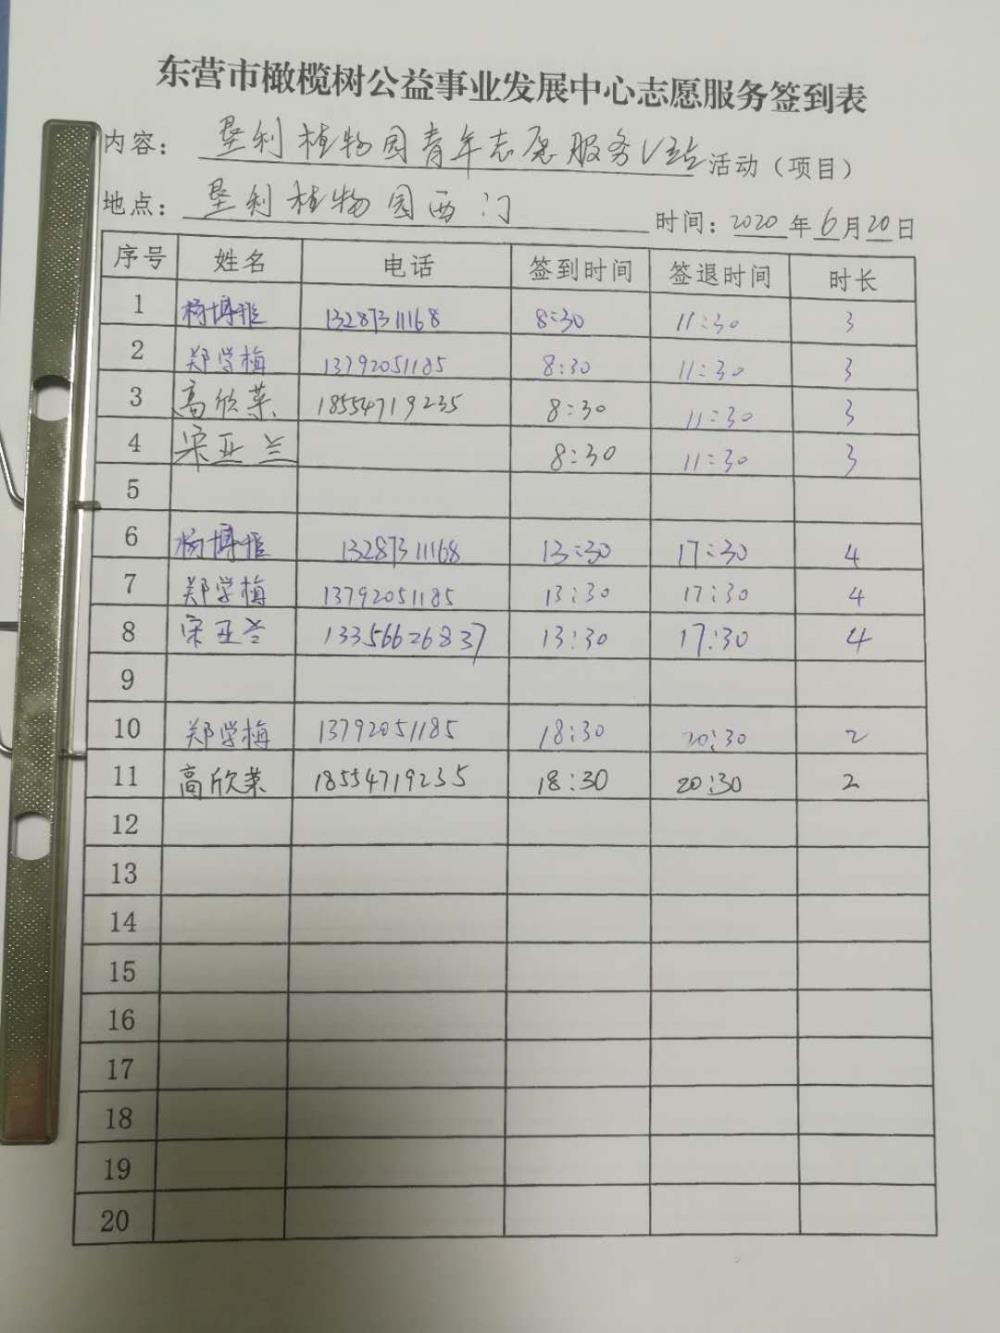 东营市橄榄树公益事业发展中心志愿服务签到表
内容：垦利植物园青年志愿服务V站活动（项目）
地点：垦利植物园西门 时间：2020年6月20日
序号 姓名 电话 签到时间 签退时间 时长
1 杨博雅 13287311168 8:30 11:30 3
2 郑学梅 13792051185 8:30 11:30 3
3 高欣荣 18554719235 8:30 11:30 3
4 宋亚兰 8:30 11:30 3
5
6 杨博雅 13287311168 13:30 17:30 4
7 郑学梅 13792051185 13:30 17:30 4
8 宋亚兰 13356626837 13:30 17:30 4
9
10 郑学梅 13792051185 18:30 20:30 2
11 高欣荣 18554719235 18:30 20:30 2
12
13
14
15
16
17
18
19
20